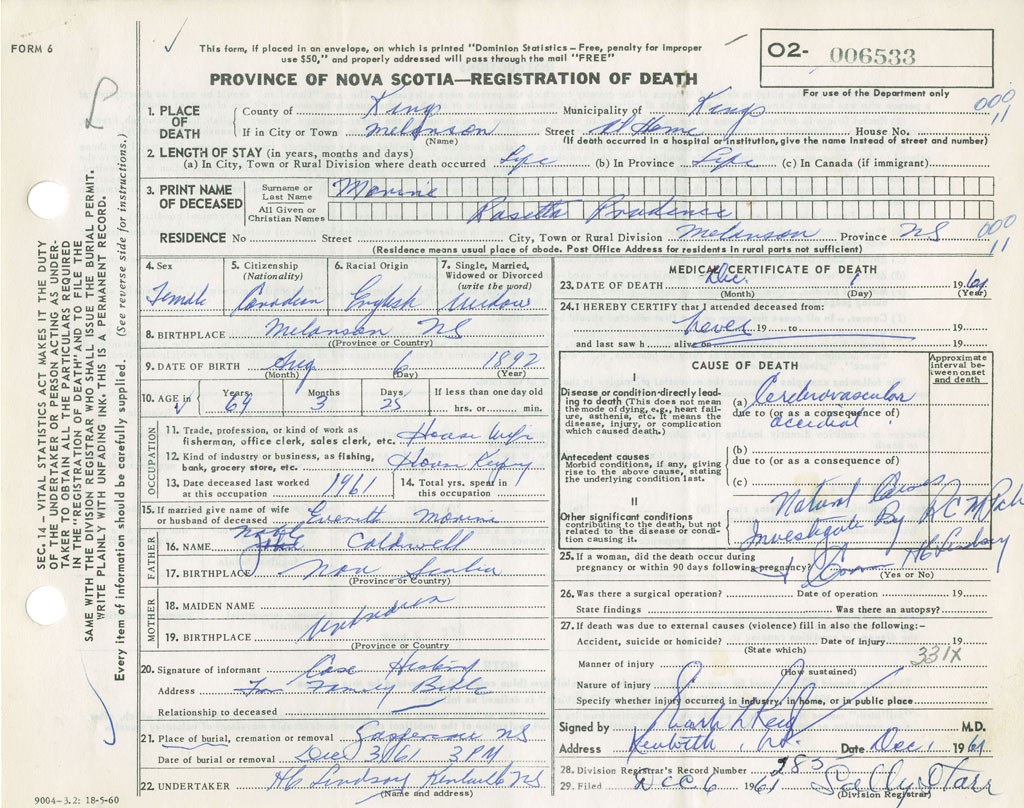 FORM 6
This form, if placed in an envelope, on which is printed "Dominion Statistics – Free, penalty for improper
use $50," and properly addressed will pass through the mail "FREE"
PROVINCE OF NOVA SCOTIA—REGISTRATION OF DEATH
O2- 006533
For use of the Department only
000
11
SEC. 14 – VITAL STATISTICS ACT MAKES IT THE DUTY
OF THE UNDERTAKER OR PERSON ACTING AS UNDER-
TAKER TO OBTAIN ALL THE PARTICULARS REQUIRED
IN THE "REGISTRATION OF DEATH" AND TO FILE THE
SAME WITH THE DIVISION REGISTRAR WHO SHALL ISSUE THE BURIAL PERMIT.
WRITE PLAINLY WITH UNFADING INK. THIS IS A PERMANENT RECORD.
Every item of information should be carefully supplied. (See reverse side for instructions.)
1. PLACE OF DEATH County of Kings Municipality of Kings
If in City or Town Melanson Street At Home House No.
(Name) (If death occurred in a hospital or institution, give the name instead of street and number)
2. LENGTH OF STAY (in years, months and days)
(a) In City, Town or Rural Division where death occurred Life (b) In Province Life (c) In Canada (if immigrant)
3. PRINT NAME OF DECEASED Surname or Last Name Morine
All Given or Christian Names Rosetta Prudence
RESIDENCE No Street City, Town or Rural Division Melanson Province NS
000
11
(Residence means usual place of abode. Post Office Address for residents in rural parts not sufficient)
4. Sex Female
5. Citizenship (Nationality) Canadian
6. Racial Origin English
7. Single, Married, Widowed or Divorced (write the word) Widow
8. BIRTHPLACE Melanson NS
(Province or Country)
9. DATE OF BIRTH Aug 6 1892
(Month) (Day) (Year)
10. AGE in Years 69 Months 3 Days 25 If less than one day old hrs. or min.
OCCUPATION
11. Trade, profession, or kind of work as
fisherman, office clerk, sales clerk, etc. House Wife
12. Kind of industry or business, as fishing,
bank, grocery store, etc. House Keeping
13. Date deceased last worked at this occupation 1961
14. Total yrs. spent in this occupation
15. If married give name of wife
or husband of deceased Everett Morine
FATHER
16. NAME Caldwell
17. BIRTHPLACE Nova Scotia
(Province or Country)
MOTHER
18. MAIDEN NAME
Unknown
19. BIRTHPLACE
(Province or Country)
20. Signature of informant
Address Family Bible
Relationship to deceased
21. Place of burial, cremation or removal Gaspereau NS
Date of burial or removal Dec 3/61 3 PM
22. UNDERTAKER HC Lindsay Kentville NS
(Name and address)
9004–3.2: 18-5-60
MEDICAL CERTIFICATE OF DEATH
23. DATE OF DEATH Dec. 1 1961
(Month) (Day) (Year)
24. I HEREBY CERTIFY that I attended deceased from:
never 19 to 19
and last saw h alive on 19
CAUSE OF DEATH
Approximate interval between onset and death
I
Disease or condition directly lead-
ing to death (This does not mean
the mode of dying, e.g., heart fail-
ure, asthenia, etc. It means the
disease, injury, or complication
which caused death.)
(a) Cerebrovascular
due to (or as a consequence of)
accident
Antecedent causes
Morbid conditions, if any, giving
rise to the above cause, stating
the underlying condition last.
(b)
due to (or as a consequence of)
(c)
II
Other significant conditions
contributing to the death, but not
related to the disease or condi-
tion causing it.
Natural Causes
Investigate By RCM
HC Lindsay
25. If a woman, did the death occur during
pregnancy or within 90 days following pregnancy?
(Yes or No)
26. Was there a surgical operation? Date of operation 19
State findings Was there an autopsy?
27. If death was due to external causes (violence) fill in also the following:–
Accident, suicide or homicide? Date of injury 19
(State which)
331X
Manner of injury
(How sustained)
Nature of injury
Specify whether injury occurred in industry, in home, or in public place
Signed by M.D.
Address Kentville, N.S. Date Dec 1 1961
28. Division Registrar's Record Number 285
29. Filed Dec 6 1961 Sally Starr
(Division Registrar)